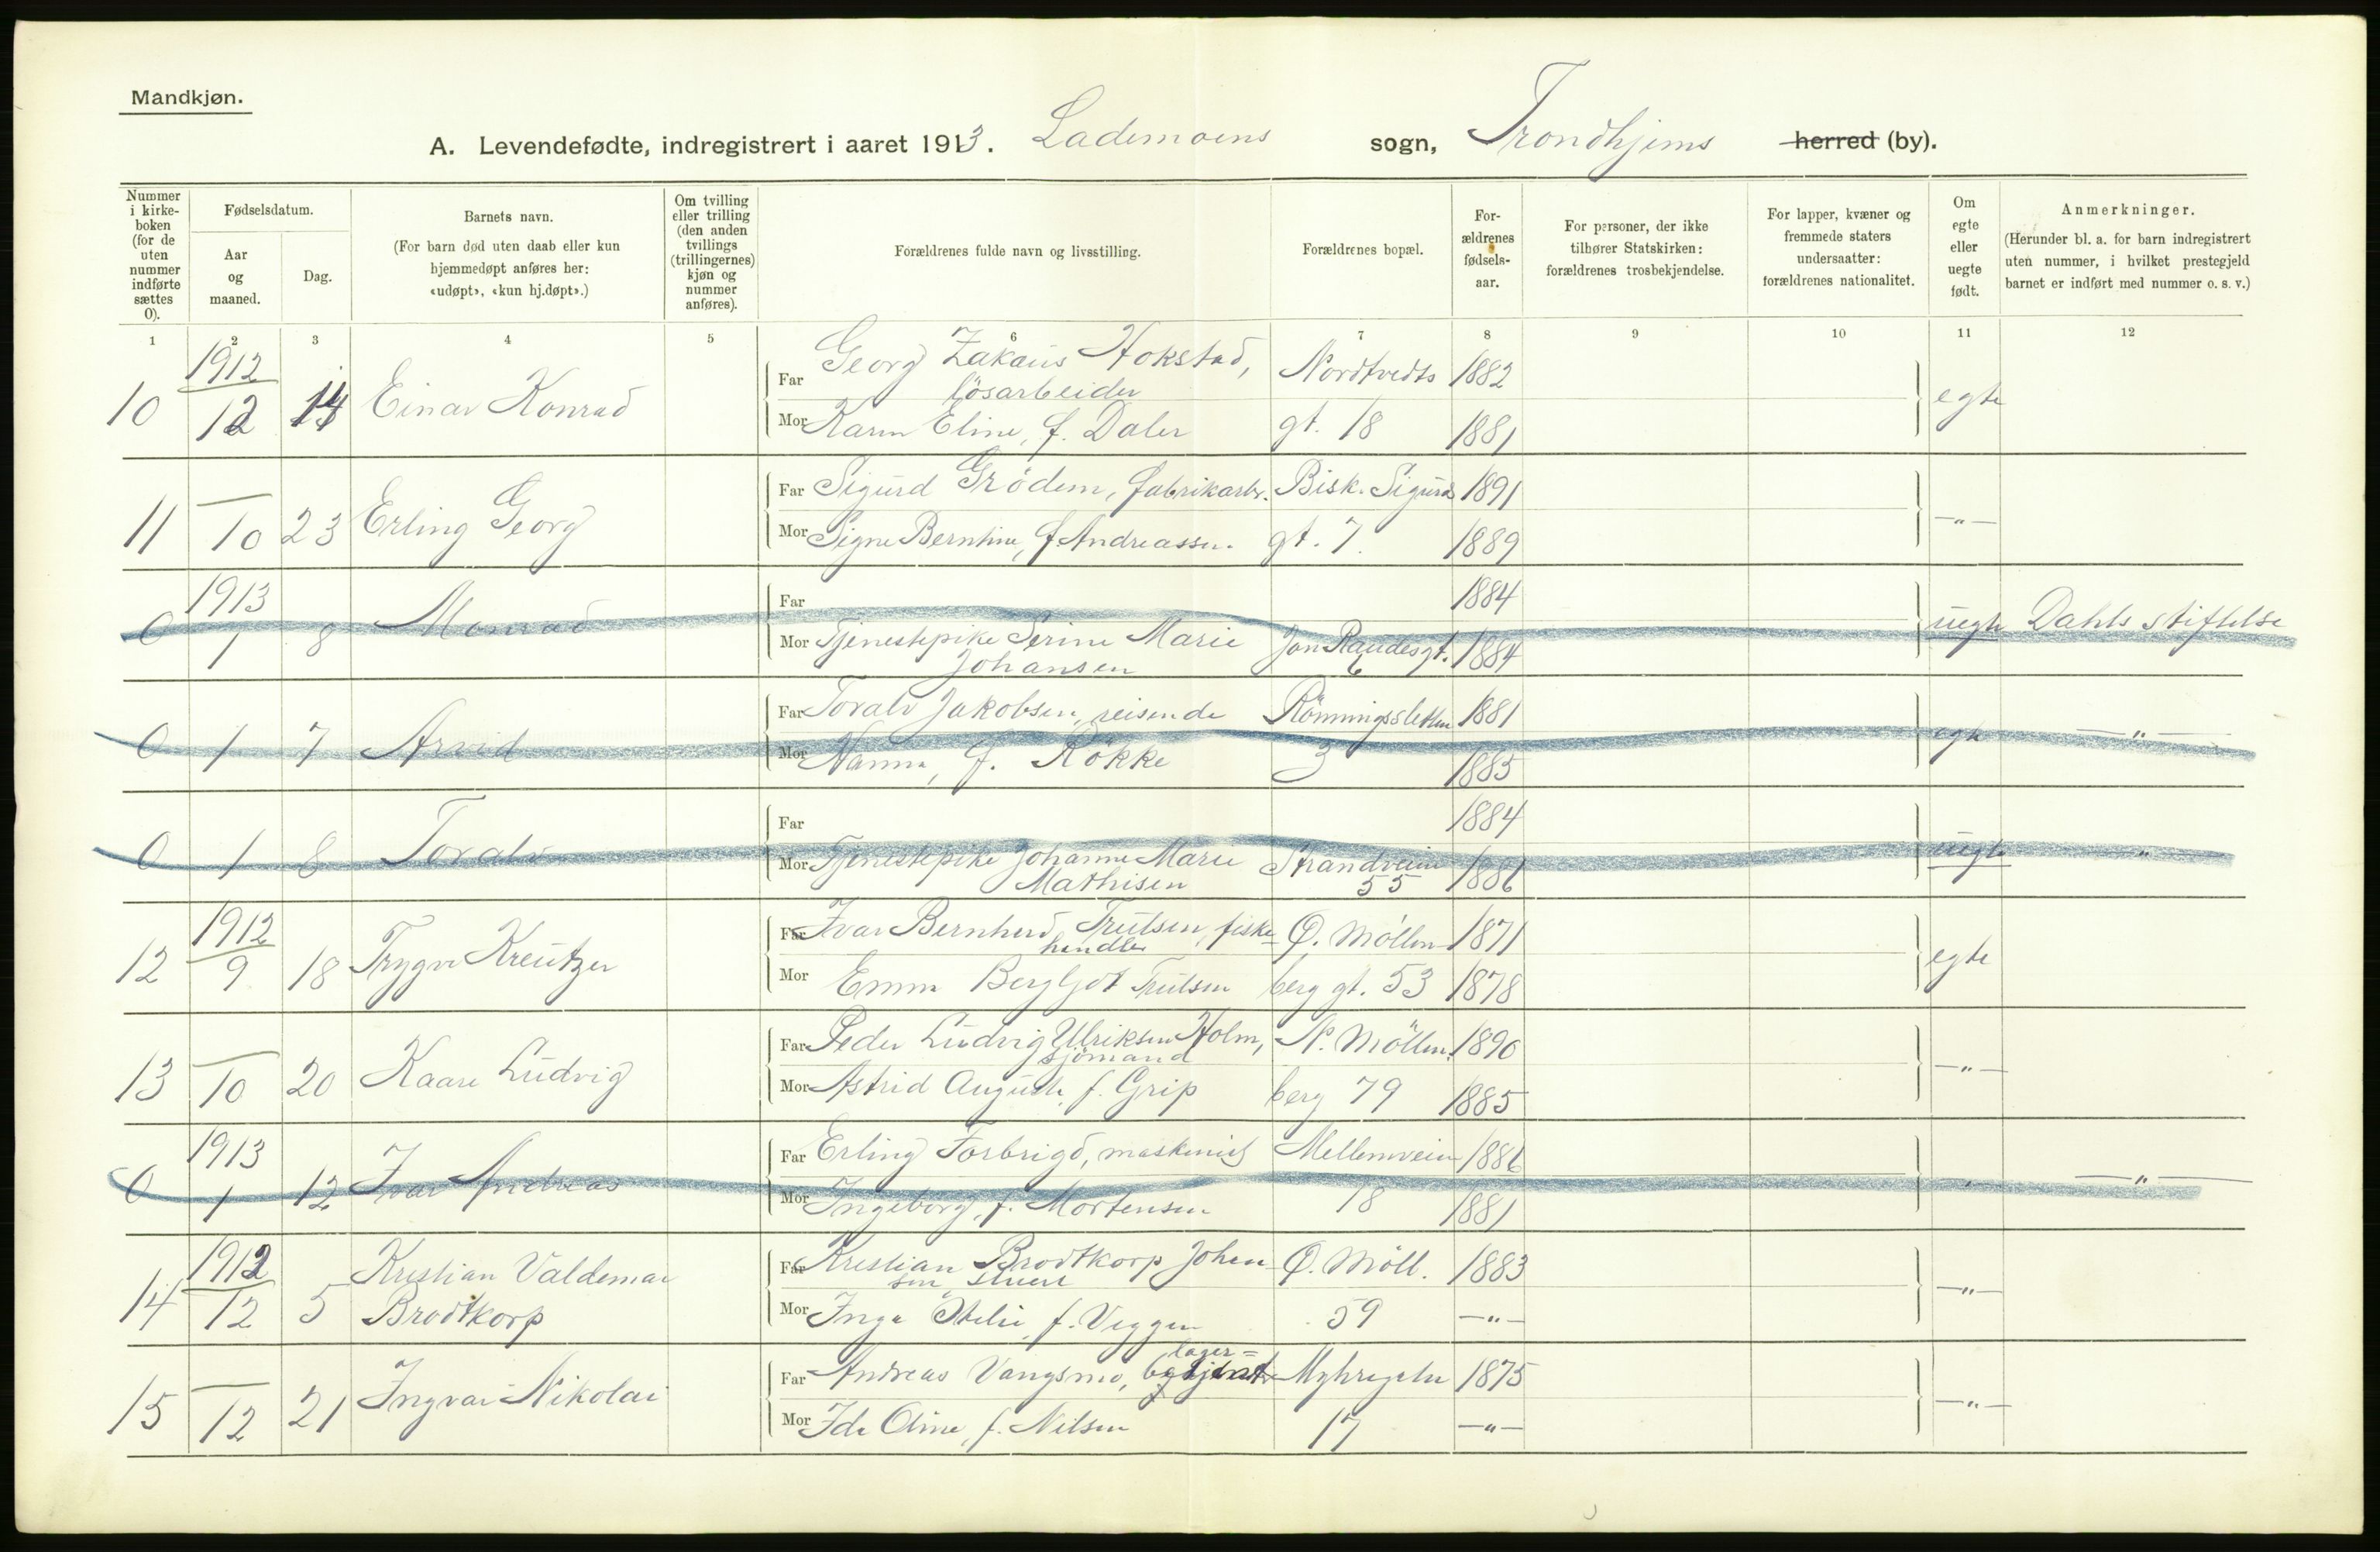 Mandkjøn.
A. Levendefødte, indregistrert i aaret 1913. Lademoens sogn, Trondhjems herred (by).
Nummer i kirke-boken (for de uten nummer indførte sættes 0).
Fødselsdatum.
Aar og maaned.
Dag.
Barnets navn.
(For barn død uten daab eller kun hjemmedøpt anføres her: «udøpt», «kun hj.døpt».)
Om tvilling eller trilling (den anden tvillings (trillingernes) kjøn og nummer anføres).
Forældrenes fulde navn og livsstilling.
Forældrenes bopæl.
For-ældrenes fødsels-aar.
For personer, der ikke tilhører Statskirken: forældrenes trosbekjendelse.
For lapper, kvæner og fremmede staters undersaatter: forældrenes nationalitet.
Om egte eller uegte født.
Anmerkninger.
(Herunder bl. a. for barn indregistrert uten nummer, i hvilket prestegjeld barnet er indført med nummer o. s. v.)
1 2 3 4 5 6 7 8 9 10 11 12
10 1912 12 14 Einar Konrad Far Georg Zakæus Hokstad, Nordtvedts 1882 egte
løsarbeider
Mor Karen Eline, f. Daler gt. 18 1881
11 — 10 23 Erling Georg Far Sigurd Grödem, fabrikarb. Bisk. Sigurds 1891 —"—
Mor Signe Berntine, f. Andreassen gt. 7. 1889
0 1913 1 8 Monrad Far 1884 uegte Dahls stiftelse
Mor Tjenestepike Serine Marie Jon Raudesgt. 1884
Johansen 6
0 1 7 Arvid Far Toralv Jakobsen, reisende Rönningssletten 1881 egte —"—
Mor Nanna, f. Rökke 3 1885
0 1 8 Toralv Far 1884 uegte "
Mor Tjenestepike Johanne Marie Strandveien 1886
Mathisen 55
12 1912 9 18 Trygve Kreutzer Far Ivar Bernherd Trulsen, fiske- Ø. Möllen- 1871 egte
handler
Mor Emma Bergljot Trulsen berg gt. 53 1878
13 — 10 20 Kaare Ludvig Far Peder Ludvig Ulriksen Holm, N. Möllen- 1890 —"—
sjömand
Mor Astrid Auguste, f. Grip berg 79 1885
0 1913 1 12 Ivar Andreas Far Erling Torbrigd, maskinist Mellemveien 1886 " —"—
Mor Ingeborg, f. Mortensen 18 1881
14 1912 12 5 Kristian Valdemar Far Kristian Brodtkorp Johan- Ø. Möll. 1883 —"—
Brodtkorp sen, stuert
Mor Inga Otelie, f. Viggen 59 —"—
15 — 12 21 Ingvar Nikolai Far Andreas Vangsmo, lager= betjent Myhregaten 1875 —"—
Mor Ida Oline, f. Nilsen 17 —"—